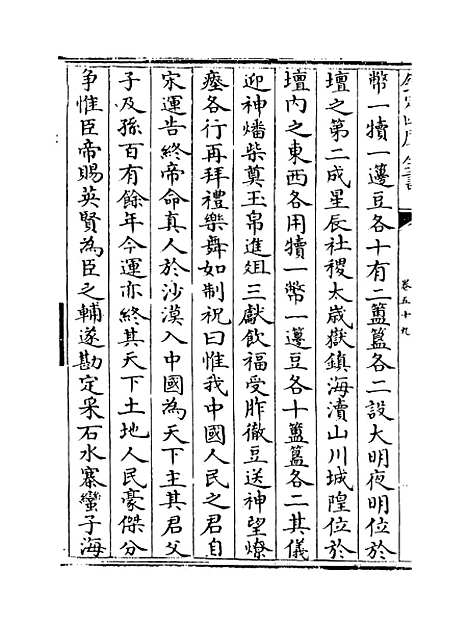 幣一犢一籩豆各十有二簠簋各二設大明夜明位於
壇之第二成星辰社稷太嵗嶽鎮海瀆山川城隍位於
壇内之東西各用犢一幣一籩豆各十簠簋各二其儀
迎神燔柴奠玉帛進俎三獻飲福受胙徹豆送神望燎
瘞各行再拜禮樂舞如制祝曰惟我中國人民之君自
宋運告終帝命真人於沙漠入中國為天下主其君父
子及孫百有餘年今運亦終其天下土地人民豪傑分
争惟臣帝賜英賢為臣之輔遂勘定采石水寨蠻子海
卷五十九